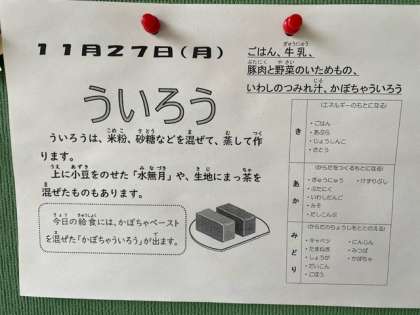 11月27日(月)
ういろう
ういろうは、米粉、砂糖などを混ぜて、蒸して作
ります。
上に小豆をのせた「水無月」や、生地にまっ茶を
混ぜたものもあります。
今日の給食には、かぼちゃペースト
を混ぜた「かぼちゃういろう」が出ます。
ごはん、牛乳、
豚肉と野菜のいためもの、
いわしのつみれ汁、かぼちゃういろう
き
(エネルギーのもとになる)
・ごはん
・あぶら
・じょうしんこ
・さとう
あか
(からだをつくるもとになる)
・ぎゅうにゅう ・けずりぶし
・ぶたにく
・いわしだんご
・みそ
・だしこんぶ
みどり
(からだのちょうしをととのえる)
・キャベツ ・にんじん
・たまねぎ ・みつば
・しょうが ・かぼちゃ
・だいこん
・ごぼう